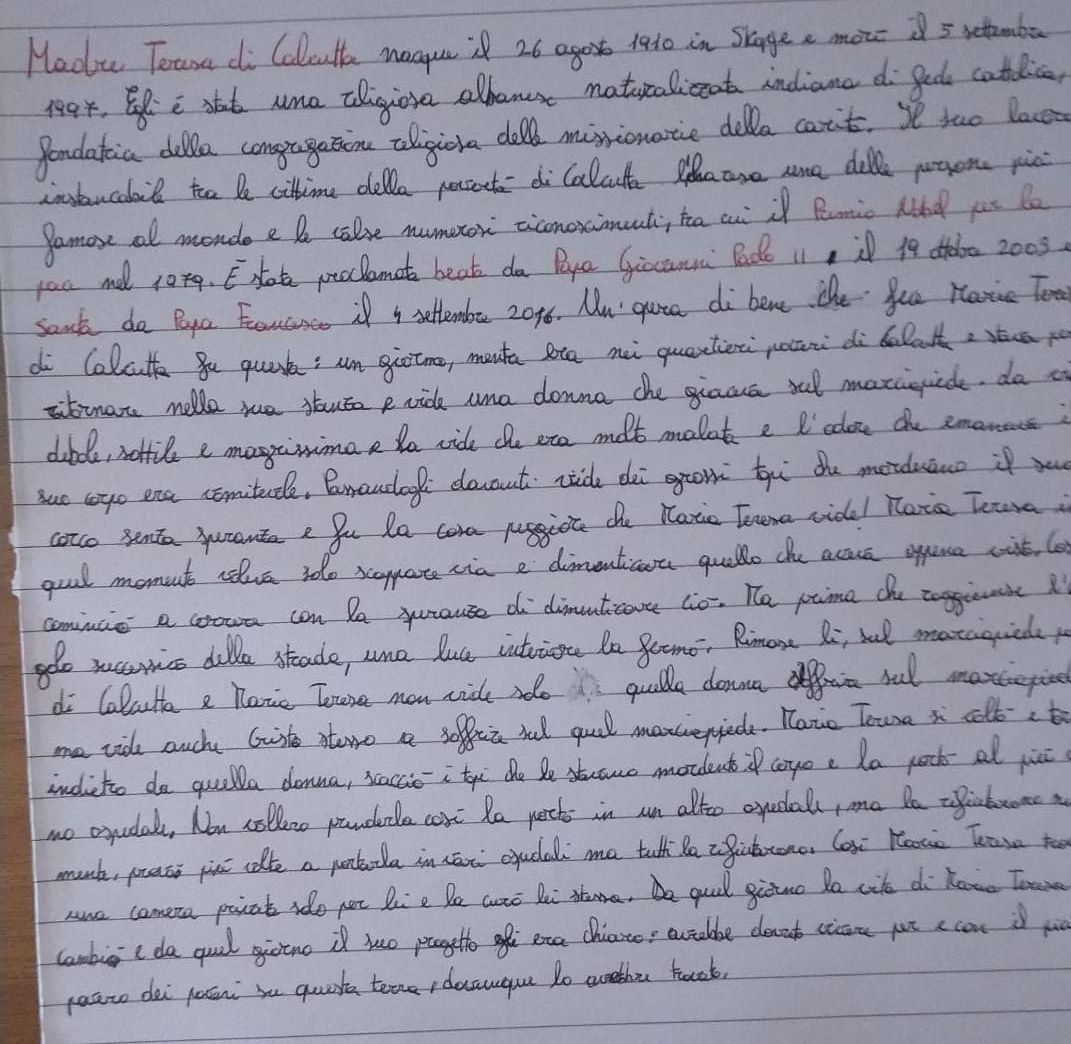 Madre Teresa di Calcutta nacque il 26 agosto 1910 in Skopje e morì il 5 settembre
1997. Egli è stata una religiosa albanese naturalizzata indiana di fede cattolica,
fondatrice della congregazione religiosa delle missionarie della carità. Il suo lavoro
instancabile tra le vittime della povertà di Calcutta l'ha resa una delle persone più
famose al mondo e le valse numerosi riconoscimenti, tra cui il Premio Nobel per la
pace nel 1979. È stata proclamata beata da Papa Giovanni Paolo II, il 19 ottobre 2003 e
santa da Papa Francesco il 4 settembre 2016. Un'opera di bene che fece Maria Teresa
di Calcutta fu questa: un giorno, mentre era nei quartieri poveri di Calcutta e stava per
ritornare nella sua stanza e vide una donna che giaceva sul marciapiede. da
debole, sottile e magrissima e la vide che era molto malata e l'odore che emanava il
suo corpo era vomitevole. Passandogli davanti vide dei grossi topi che mordevano il suo
corpo senza speranza e fu la cosa peggiore che Maria Teresa vide! Maria Teresa in
quel momento voleva solo scappare via e dimenticare quello che aveva appena visto. Così
cominciò a correre con la speranza di dimenticare ciò. Ma prima che raggiunse
successivo della strada, una luce interiore la fermò. Rimase lì, sul marciapiede
di Calcutta e Maria Teresa non vide solo quella donna soffrire sul marciapiede
ma vide anche Cristo stesso a soffrire sul quel marciepiede. Maria Teresa si voltò e
indietro da quella donna, scacciò i topi che le stavano mordendo il corpo e la portò al più
no ospedale. Non vollero prenderla così la portò in un altro ospedale, ma la rifiutarono
mente, provò più volte a portarla in vari ospedali ma tutti la rifiutarono. Così Maria Teresa
una camera privata solo per lei e la curò lei stessa. Da quel giorno la vita di Maria Teresa
cambiò e da quel giorno il suo progetto gli era chiaro: avrebbe dovuto vivere per e con il più
povero dei poveri su questa terra, dovunque lo avrebbe trovato.